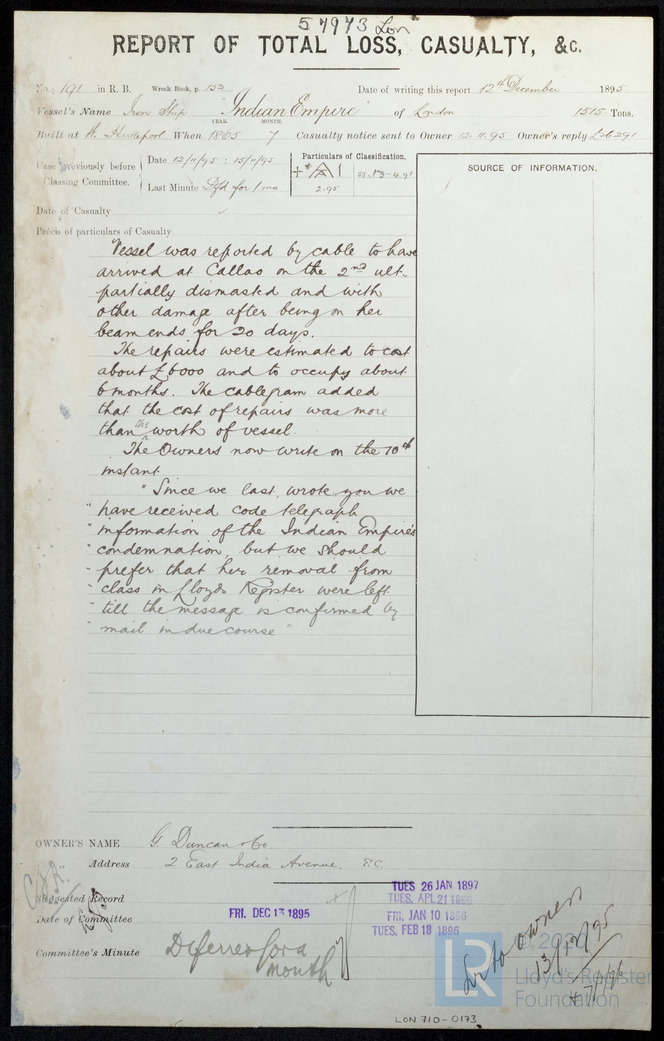 57973 Lon
REPORT OF TOTAL LOSS, CASUALTY, &c.
No. 191 in R. B. Wreck Book, p. 152 Date of writing this report 12th December 1895
Vessel's Name Iron Ship "Indian Empire" of London 1515 Tons.
YEAR. MONTH.
Built at W. Hartlepool When 1865 7 Casualty notice sent to Owner 12.11.95 Owner's reply
Case previously before Classing Committee.
Date 12/11/95 : 15/11/95
Last Minute Dfd for 1 mo
Particulars of Classification.
2.95
SOURCE OF INFORMATION.
Date of Casualty
Précis of particulars of Casualty
Vessel was reported by cable to have
arrived at Callao on the 2nd ult.
partially dismasted and with
other damage after being on her
beam ends for 20 days.
The repairs were estimated to cost
about £6000 and to occupy about
6 months. The cablegram added
that the cost of repairs was more
than the worth of vessel.
The Owners now write on the 10th
instant
"Since we last wrote you we
"have received code telegraph
"information of the Indian Empire's
"condemnation, but we should
"prefer that her removal from
"class in Lloyds Register were left
"till the message is confirmed by
"mail in due course"
OWNER'S NAME G Duncan & Co.
Address 2 East India Avenue, E.C.
Suggested Record
Date of Committee
FRI. DEC 13 1895
TUES 26 JAN 1897
TUES. APL 21 1896
FRI. JAN 10 1896
TUES. FEB 18 1896
Committee's Minute Deferred for a
month
Lr to owners
13/12/95
& 7/1/96
LR
© 202
Lloyd's Register
Foundation
LON 710-0173